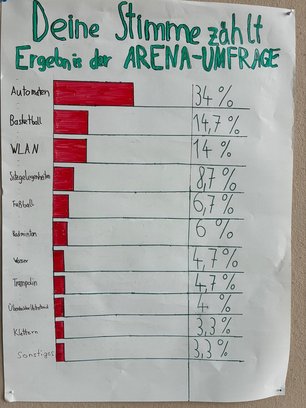 Deine Stimme zählt
Ergebnis der ARENA-UMFRAGE
Automaten 34 %
Basketball 14,7 %
WLAN 14 %
Sitzgelegenheiten 8,7 %
Fußball 6,7 %
Badminton 6 %
Wasser 4,7 %
Trampolin 4,7 %
4 %
Klettern 3,3 %
Sonstiges 3,3 %